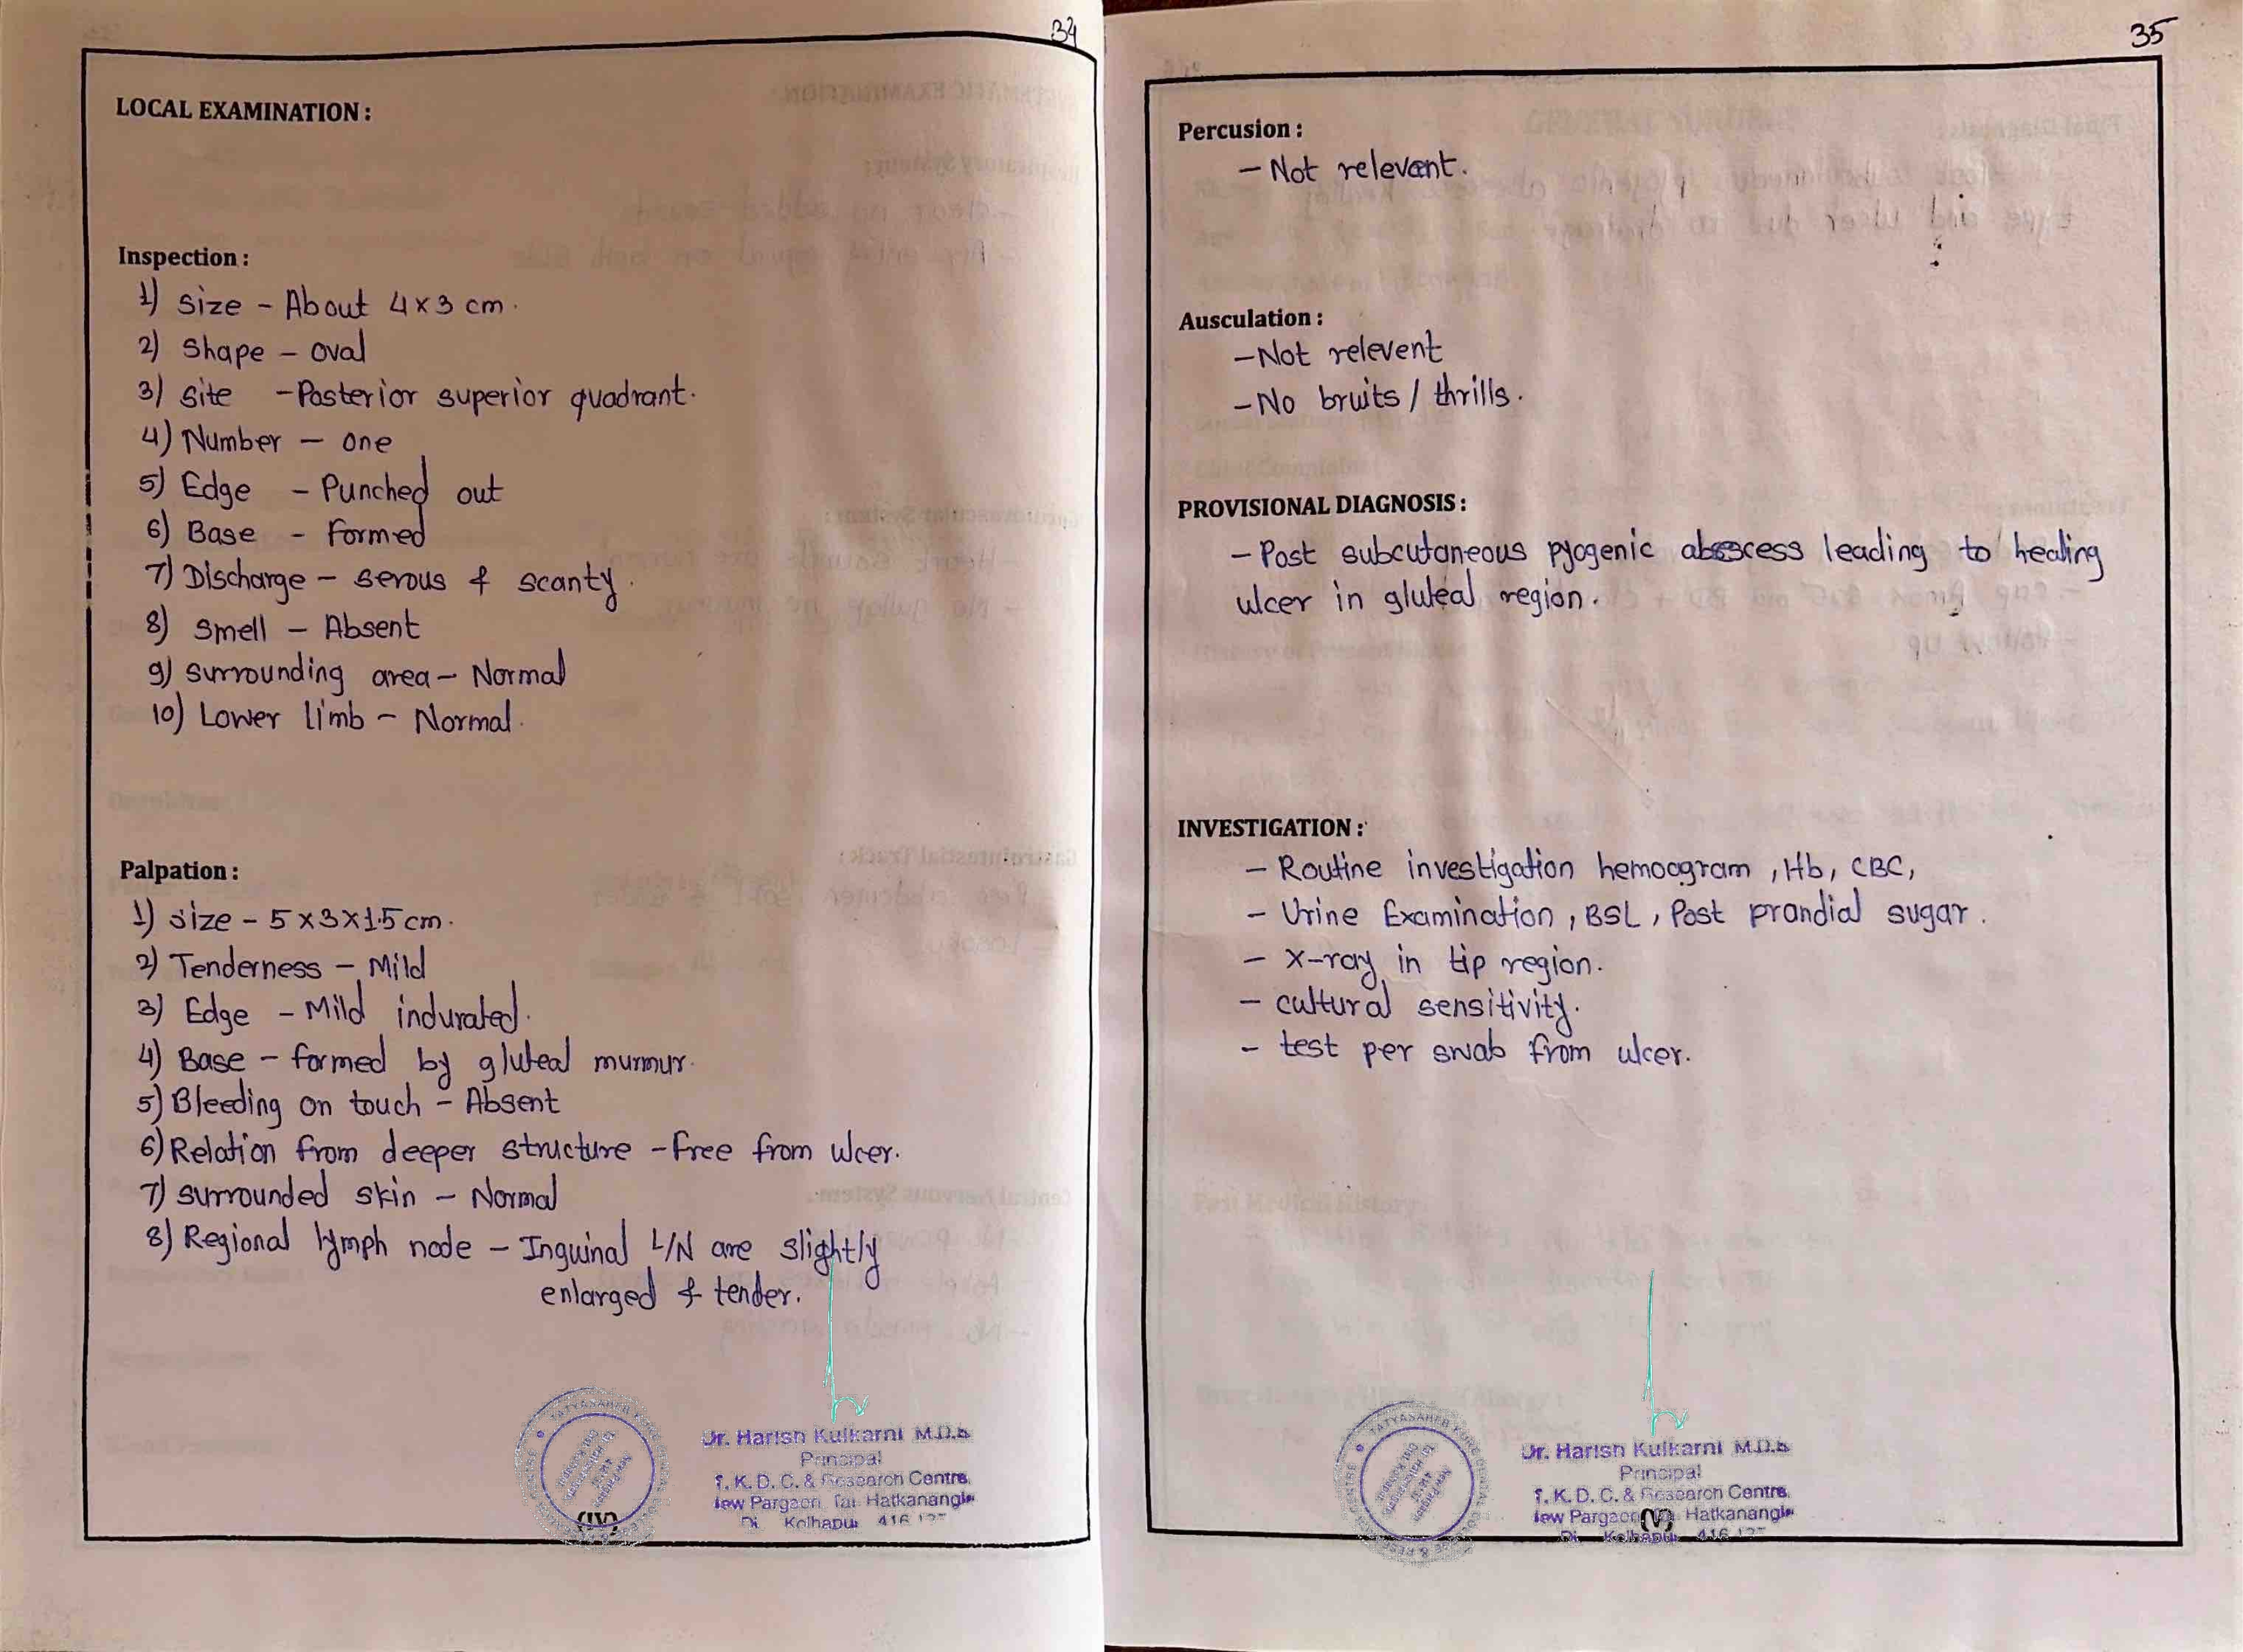 34
LOCAL EXAMINATION :
Inspection :
1) Size - About 4 x 3 cm.
2) Shape - Oval
3) Site - Posterior superior quadrant.
4) Number - one
5) Edge - Punched out
6) Base - Formed
7) Discharge - serous & scanty.
8) Smell - Absent
9) Surrounding area - Normal
10) Lower limb - Normal.
Palpation :
1) Size - 5 x 3 x 1.5 cm.
2) Tenderness - Mild
3) Edge - Mild indurated.
4) Base - formed by gluteal murmur.
5) Bleeding on touch - Absent
6) Relation from deeper structure - Free from ulcer.
7) Surrounded skin - Normal
8) Regional lymph node - Inguinal L/N are slightly
enlarged & tender.
Dr. Harish Kulkarni M.D.S
Principal
T. K. D. C. & Research Centre,
New Pargaon Tal Hatkanangle
Di. Kolhapur 416
(IV)
35
Percusion :
- Not relevant.
Ausculation :
- Not relevent
- No bruits / thrills.
PROVISIONAL DIAGNOSIS :
- Post subcutaneous pyogenic abscess leading to healing
ulcer in gluteal region.
INVESTIGATION :
- Routine investigation hemoogram , Hb, CBC,
- Urine Examination , BSL , Post prandial sugar.
- X-ray in tip region.
- cultural sensitivity.
- test per swab from ulcer.
Dr. Harish Kulkarni M.D.S
Principal
T. K. D. C. & Research Centre,
New Pargaon Hatkanangle
Di. Kolhapur 416
(V)